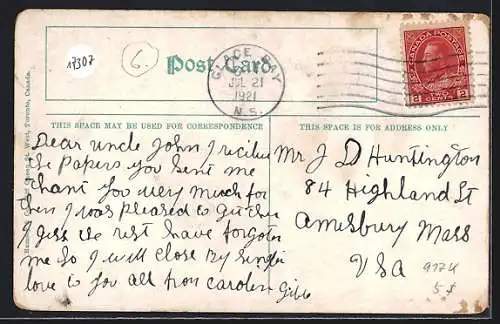 17307
6.
Post Card
GLACE BAY
JUL 21
1921
N.S.
CANADA POSTAGE
2 CENTS 2
THIS SPACE MAY BE USED FOR CORRESPONDENCE
THIS SPACE IS FOR ADDRESS ONLY
Dear uncle John I
the Papers you sent me
you very much for
I was pleased to get
I rest have forgoten
me so I will close by
love to you all from
Mr J D Huntington
84 Highland St
Amesbury Mass
USA
5
West, Toronto, Canada.